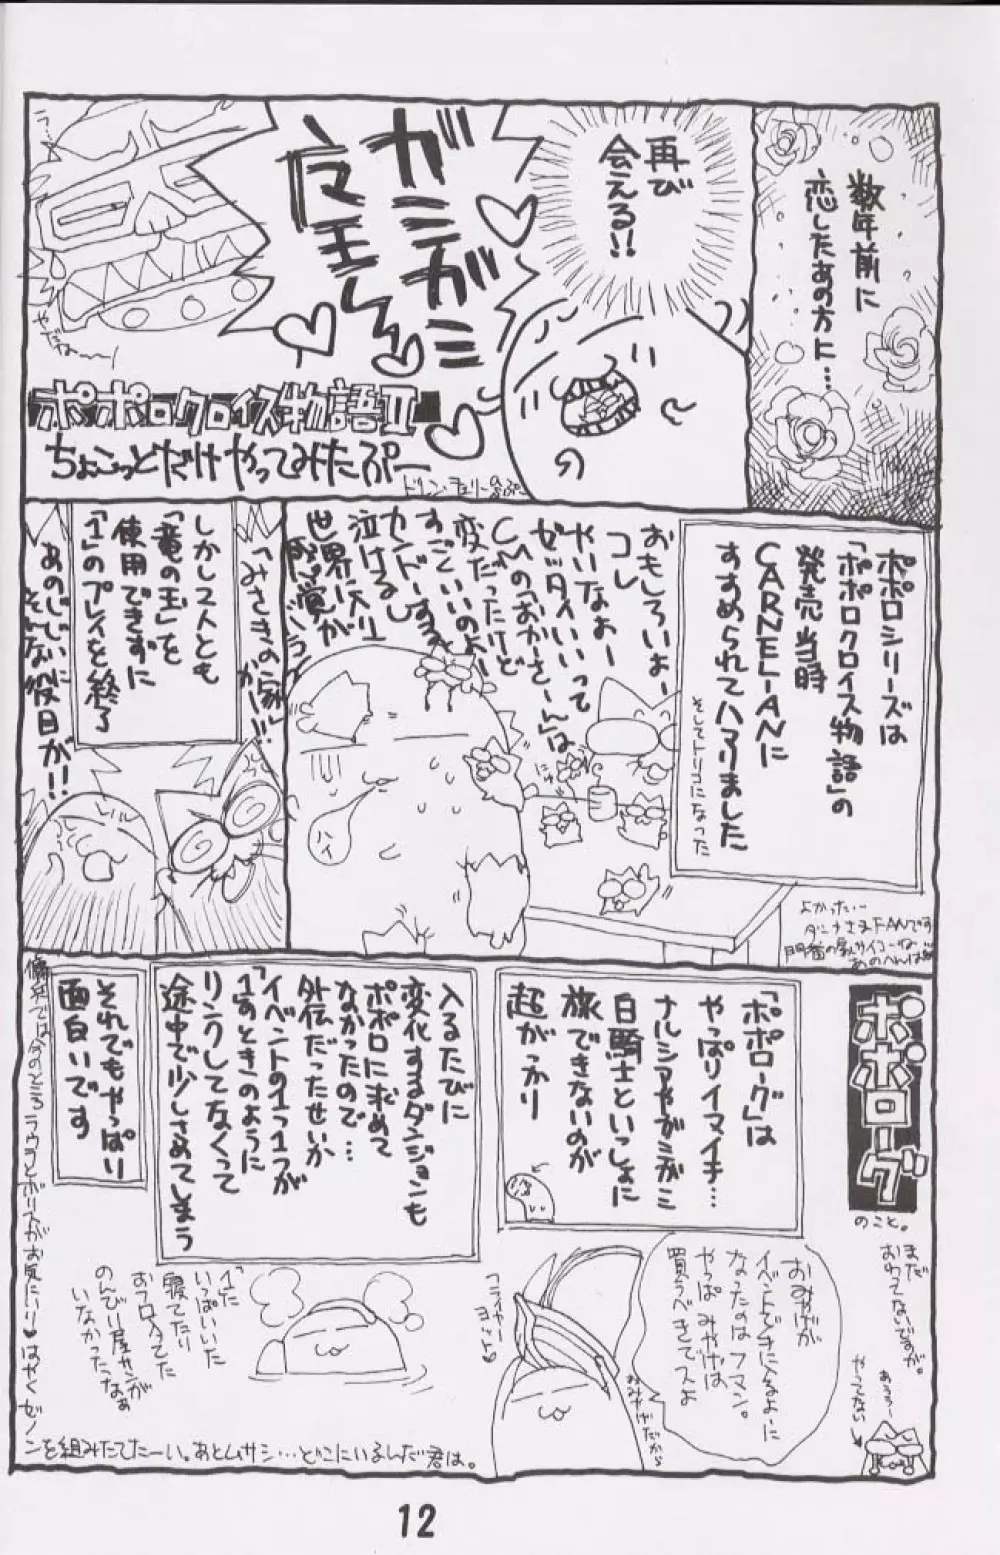 数年前に
恋したあの方に…
再び
会える!!
ガミガミ
魔王さん
ラ…
やだねーー
ポポロクロイス物語II
ちょこっとだけやってみたぷー
ポポロシリーズは
「ポポロクロイス物語」の
発売当時
CARNELIANに
すすめられてハマりました
そしてトリコになった
おもしろいよー
コレ
やいなよー
ゼッタイいいって
CMの「おかーさーん」は
変だったけど
すごくいいのよー
カンドーするよ
泣けるし
世界一入り
ハイ
よかった…
「みさきの家」
がーー!!!
しかし2人とも
「竜の玉」を
使用できずに
「1」のプレイを終了
そんな後日が!!
ポポローグ
のこと。
「ポポローグ」は
やっぱりイマイチ…
ナルシアやガミガミ
白騎士といっしょに
旅できないのが
超がっかり
入るたびに
変化するダンジョンも
ポポロに求めて
なかったので…
外伝だったせいか
「イベントの1つ1つが
1」のときのように
リンクしてなくって
途中で少しさめてしまう
それでもやっぱり
面白いです
まだ
おわってないですが。
あうぅー
やってない
おみやげが
イベントで手に入るよーに
なったのはフマン。
やっぱみやげは
買うべきでスよ
おみやげだから
「1」に
いっぱいいた
寝てたり
おフロ入ってた
のんびり屋サンが
いなかったなぁ
傭兵ではいまのところラウラとボリスがお気にいり♥はやくゼノ
ンを組みたてたーい。あとムサシ…どこにいるんだ君は。
12